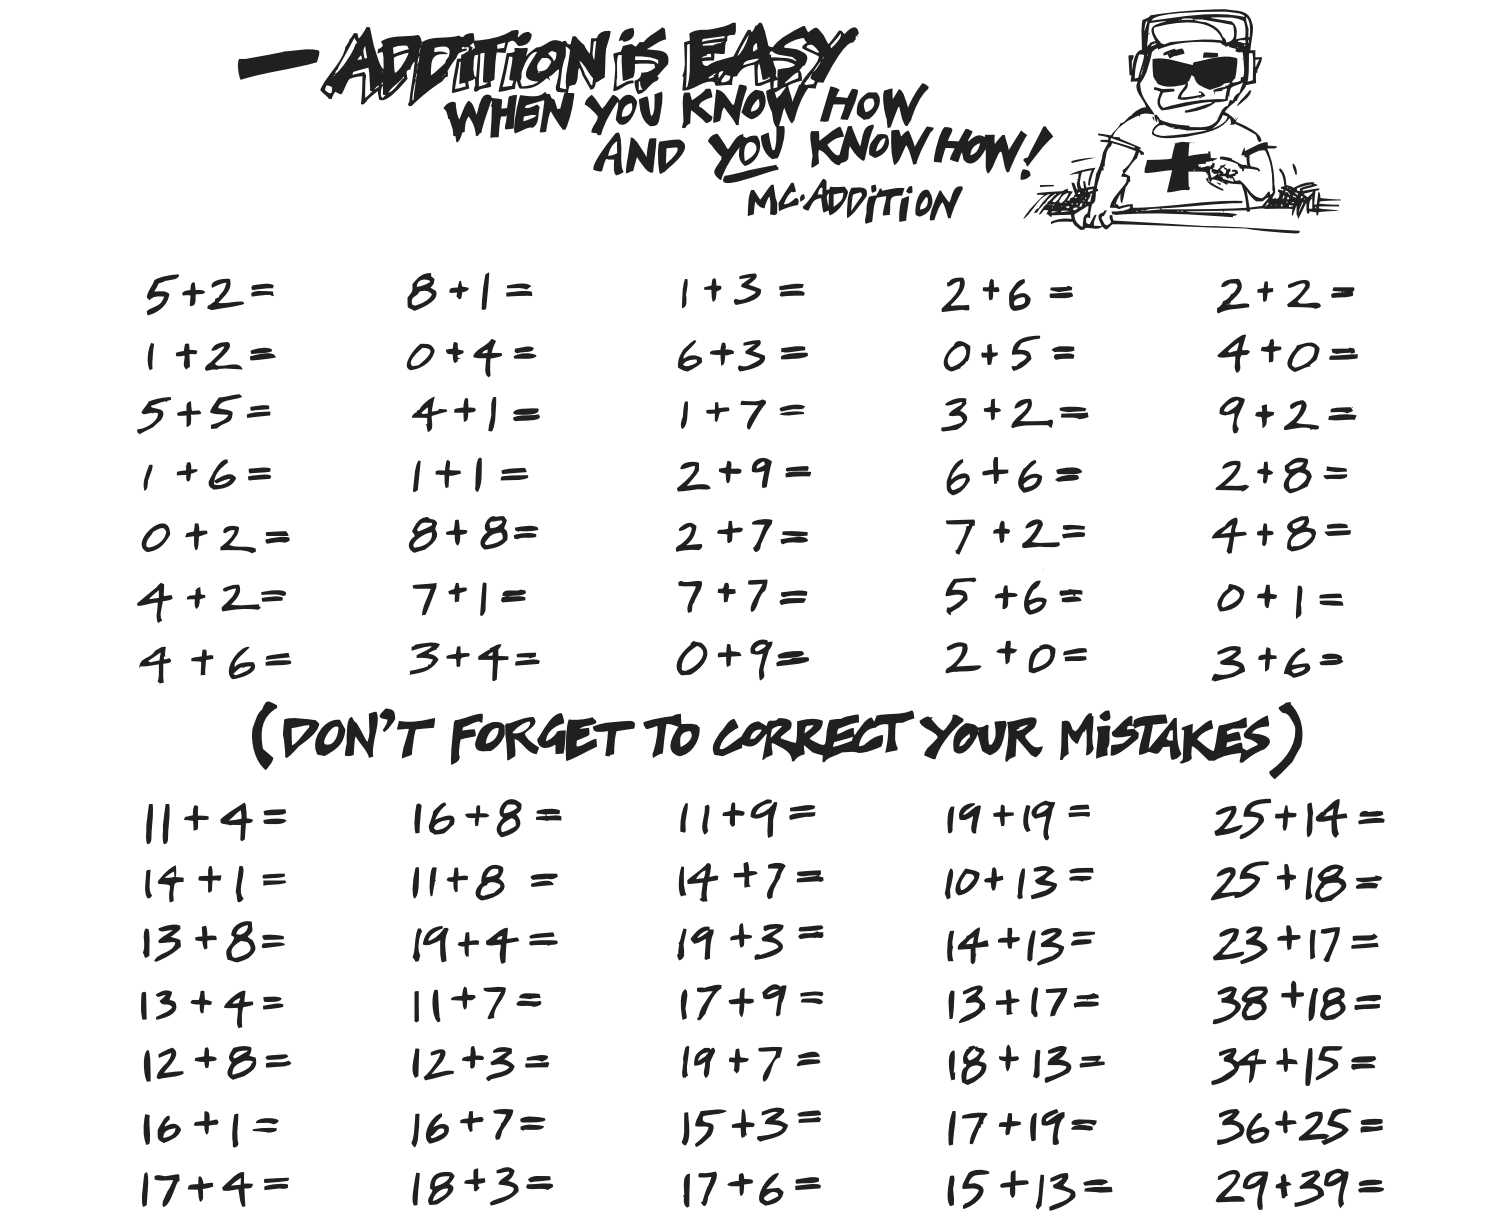 — ADDITION IS EASY
WHEN YOU KNOW HOW
AND YOU KNOW HOW!
MC.ADDITION
5+2= 8+1= 1+3= 2+6= 2+2=
1+2= 0+4= 6+3= 0+5= 4+0=
5+5= 4+1= 1+7= 3+2= 9+2=
1+6= 1+1= 2+9= 6+6= 2+8=
0+2= 8+8= 2+7= 7+2= 4+8=
4+2= 7+1= 7+7= 5+6= 0+1=
4+6= 3+4= 0+9= 2+0= 3+6=
(DON'T FORGET TO CORRECT YOUR MISTAKES)
11+4= 16+8= 11+9= 19+19= 25+14=
14+1= 11+8= 14+7= 10+13= 25+18=
13+8= 19+4= 19+3= 14+13= 23+17=
13+4= 11+7= 17+9= 13+17= 38+18=
12+8= 12+3= 19+7= 18+13= 34+15=
16+1= 16+7= 15+3= 17+19= 36+25=
17+4= 18+3= 17+6= 15+13= 29+39=